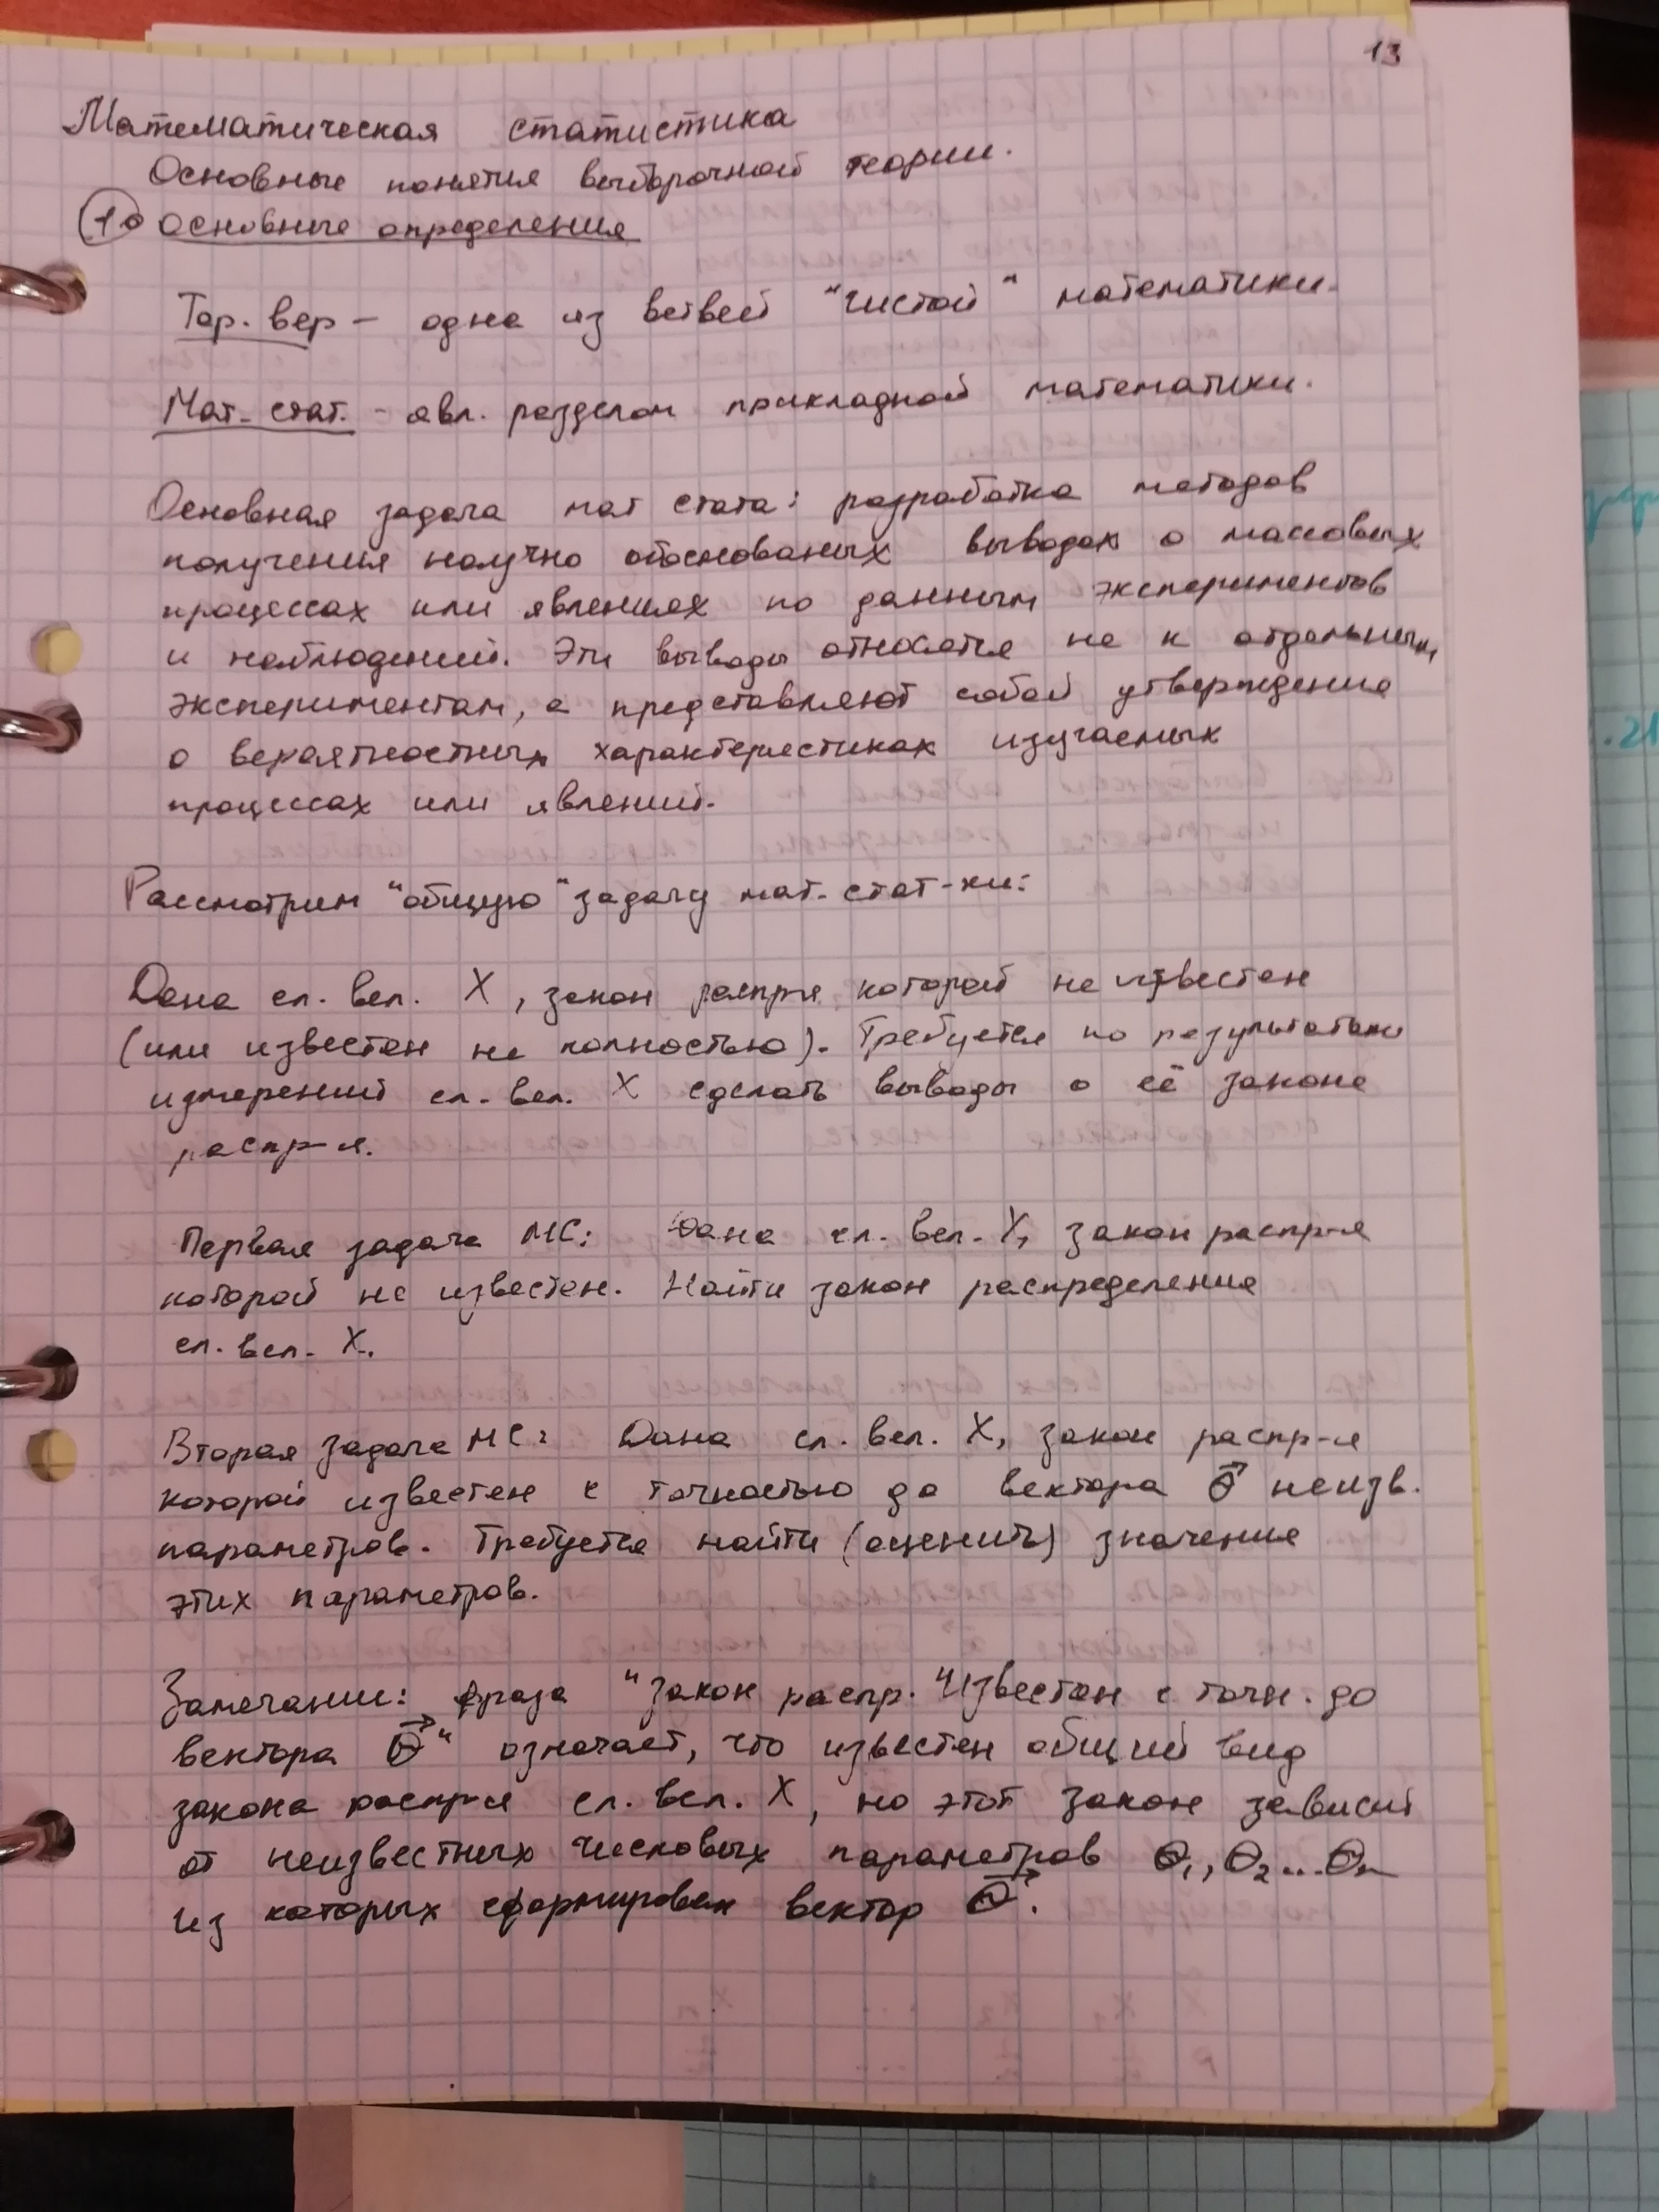 13
Математическая статистика
Основные понятия выборочной теории.
1о Основные определения
Тор. вер – одна из ветвей "чистой" математики.
Мат. стат. - явл. разделом прикладной математики.
Основная задача мат стата: разработка методов
получения научно обоснованых выводов о массовых
процессах или явлениях по данным экспериментов
и наблюдений. Эти выводы относятся не к отдельным
экспериментам, а представляют собой утверждения
о вероятностных характеристиках изучаемых
процессах или явлений.
Рассмотрим "общую" задачу мат. стат-ки:
Дана сл. вел. X, закон распр-я которой не известен
(или известен не полностью). Требуется по результатам
измерений сл. вел. X сделать выводы о её законе
распр-я.
Первая задача МС: Дана сл. вел. X, закон распр-я
которой не известен. Найти закон распределения
сл. вел. X.
Вторая задача МС: Дана сл. вел. X, закон распр-я
которой известен с точностью до вектора θ⃗ неизв.
параметров. Требуется найти (оценить) значение
этих параметров.
Замечание: фраза "закон распр. "известен с точн. до
вектора θ⃗" означает, что известен общий вид
закона распр-я сл. вел. X, но этот закон зависит
от неизвестных числовых параметров θ₁, θ₂...θₙ
из которых сформирован вектор θ⃗.